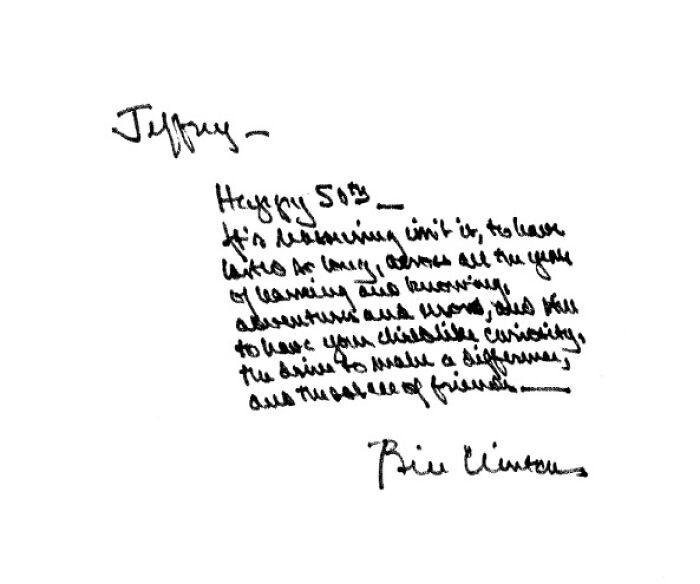 Jeffrey —
Happy 50th —
It's reassuring isn't it, to have
lasted as long, across all the years
of learning and knowing,
adventures and
to have your childlike curiosity,
the drive to make a difference,
and the solace of friends. —
Bill Clinton